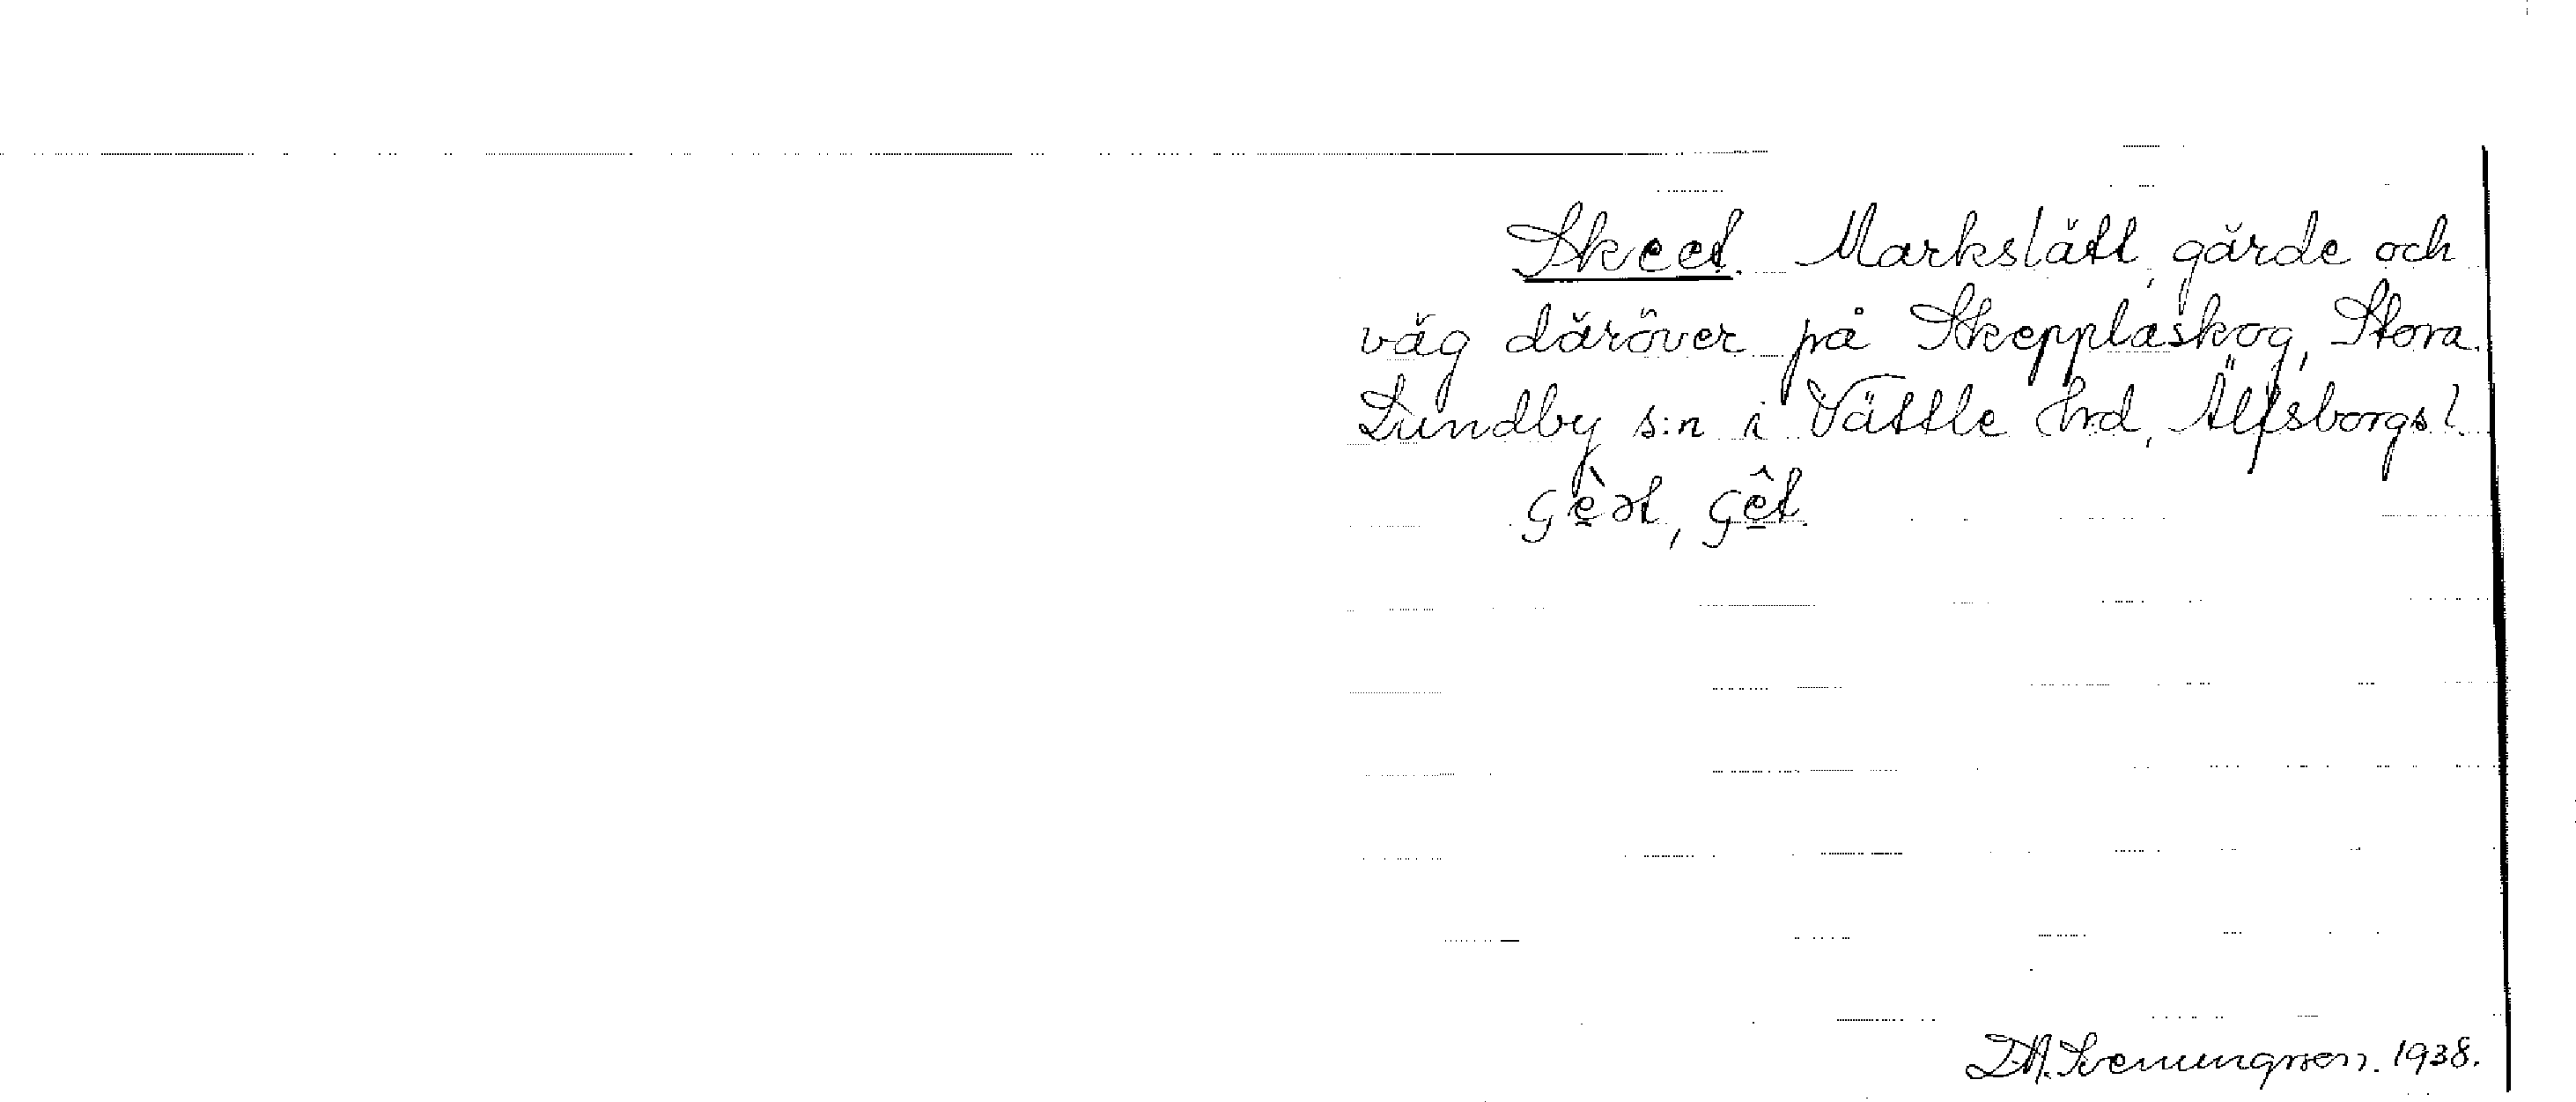 Skeet. Markslätt, gärde och
väg däröver på Skepplaskog, Stora
Lundby s:n i Vättle hrd, Älfsborgs l.
çè̱ət, çê̱t.
D.A. Svenungsson. 1938.